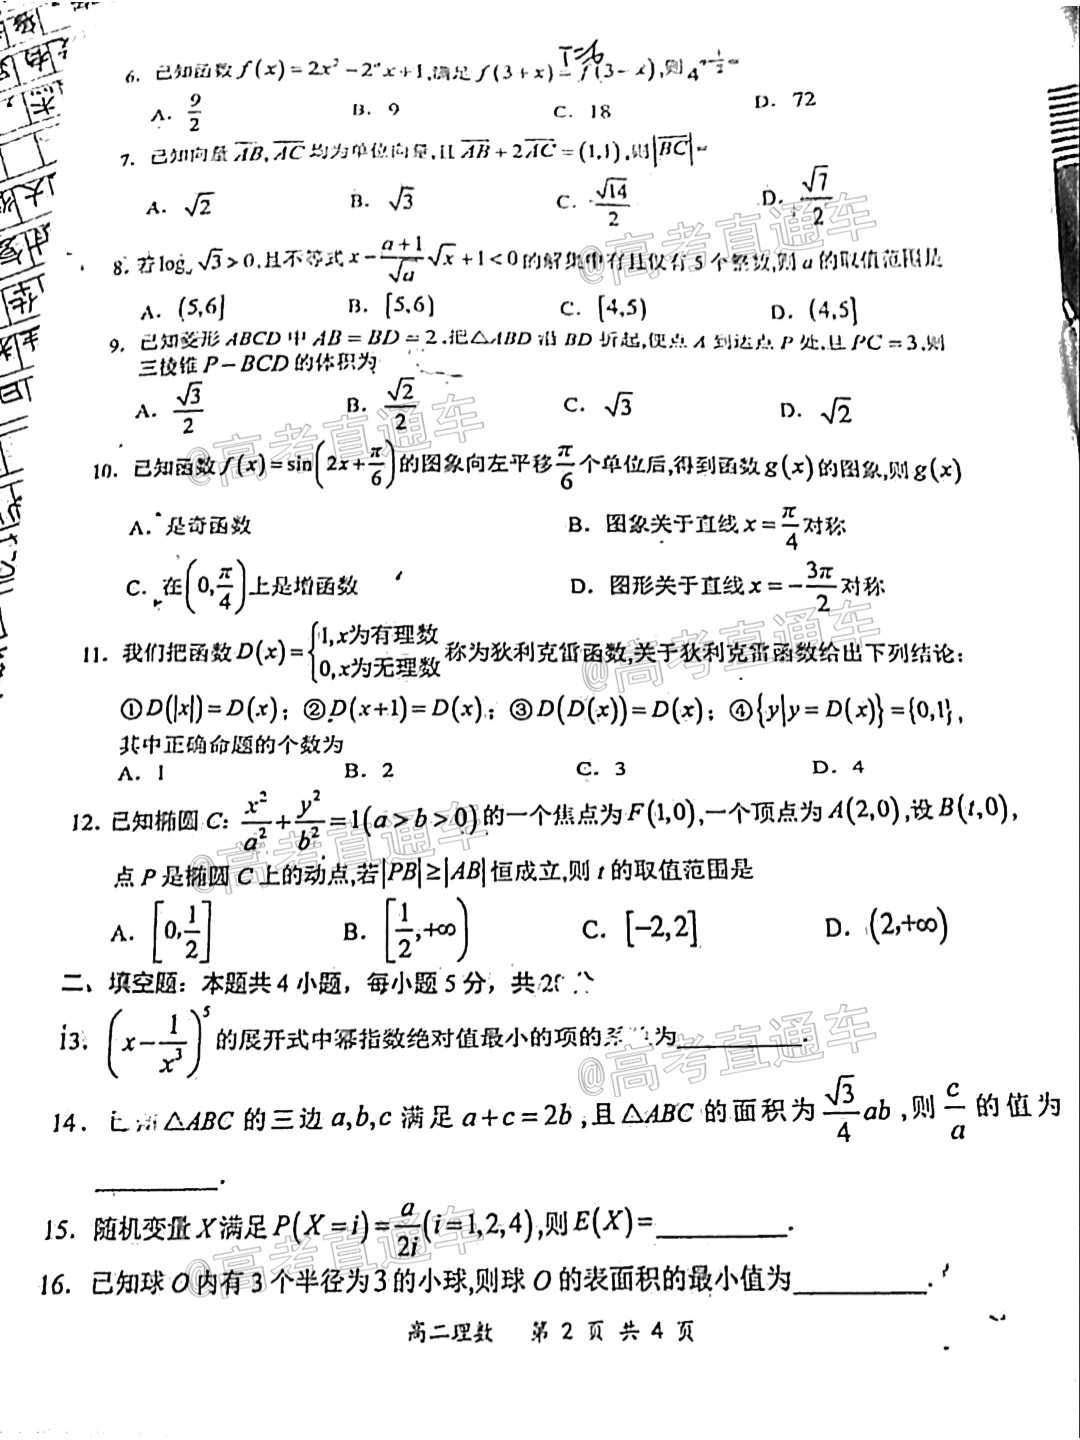 T=6
6. 已知函数 f(x)=2x²-2ⁿx+1,满足 f(3+x)=f(3-x),则 4^(n-1/2)=
A. 9/2 B. 9 C. 18 D. 72
7. 已知向量 AB, AC 均为单位向量,且 AB+2AC=(1,1),则|BC|=
A. √2 B. √3 C. √14/2 D. √7/2
@高考直通车
8. 若 log √3>0,且不等式 x-(a+1)/√a √x+1<0 的解集中有且仅有 5 个整数,则 a 的取值范围是
A. (5,6] B. [5,6) C. [4,5) D. (4,5]
9. 已知菱形 ABCD 中 AB=BD=2,把△ABD 沿 BD 折起,使点 A 到达点 P 处,且 PC=3,则
三棱锥 P-BCD 的体积为
A. √3/2 B. √2/2 C. √3 D. √2
@高考直通车
10. 已知函数 f(x)=sin(2x+π/6)的图象向左平移 π/6 个单位后,得到函数 g(x)的图象,则 g(x)
A. 是奇函数 B. 图象关于直线 x=π/4 对称
C. 在(0,π/4)上是增函数 D. 图形关于直线 x=-3π/2 对称
@高考直通车
11. 我们把函数 D(x)={1,x为有理数 0,x为无理数 称为狄利克雷函数,关于狄利克雷函数给出下列结论:
①D(|x|)=D(x); ②D(x+1)=D(x); ③D(D(x))=D(x); ④{y|y=D(x)}={0,1},
其中正确命题的个数为
A. 1 B. 2 C. 3 D. 4
12. 已知椭圆 C: x²/a²+y²/b²=1(a>b>0)的一个焦点为 F(1,0),一个顶点为 A(2,0),设 B(t,0),
@高考直通车
点 P 是椭圆 C 上的动点,若|PB|≥|AB|恒成立,则 t 的取值范围是
A. [0,1/2] B. [1/2,+∞) C. [-2,2] D. (2,+∞)
二、填空题：本题共 4 小题，每小题 5 分，共 20
13. (x-1/x³)⁵ 的展开式中幂指数绝对值最小的项的系 为________.
@高考直通车
14. △ABC 的三边 a,b,c 满足 a+c=2b,且△ABC 的面积为 √3/4 ab,则 c/a 的值为
________.
15. 随机变量 X 满足 P(X=i)=a/2i(i=1,2,4),则 E(X)=________.
@高考直通车
16. 已知球 O 内有 3 个半径为 3 的小球,则球 O 的表面积的最小值为________.
高二理数 第 2 页 共 4 页